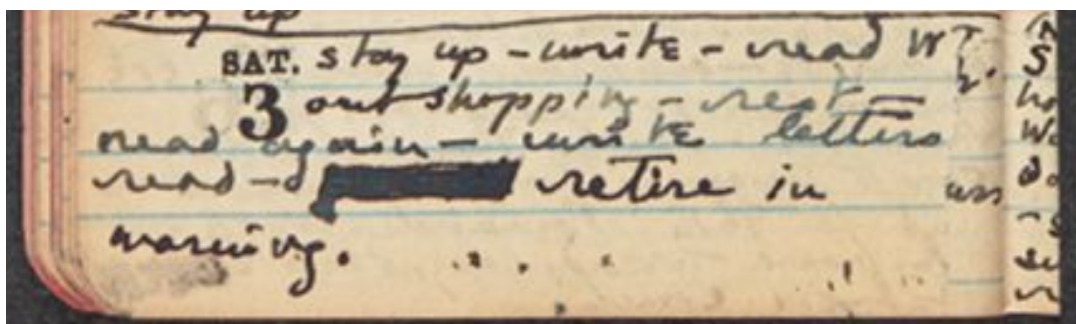 stay up
SAT. stay up - write - read W
3 out shopping - rest -
read again - write letters
read - d retire in
morning.